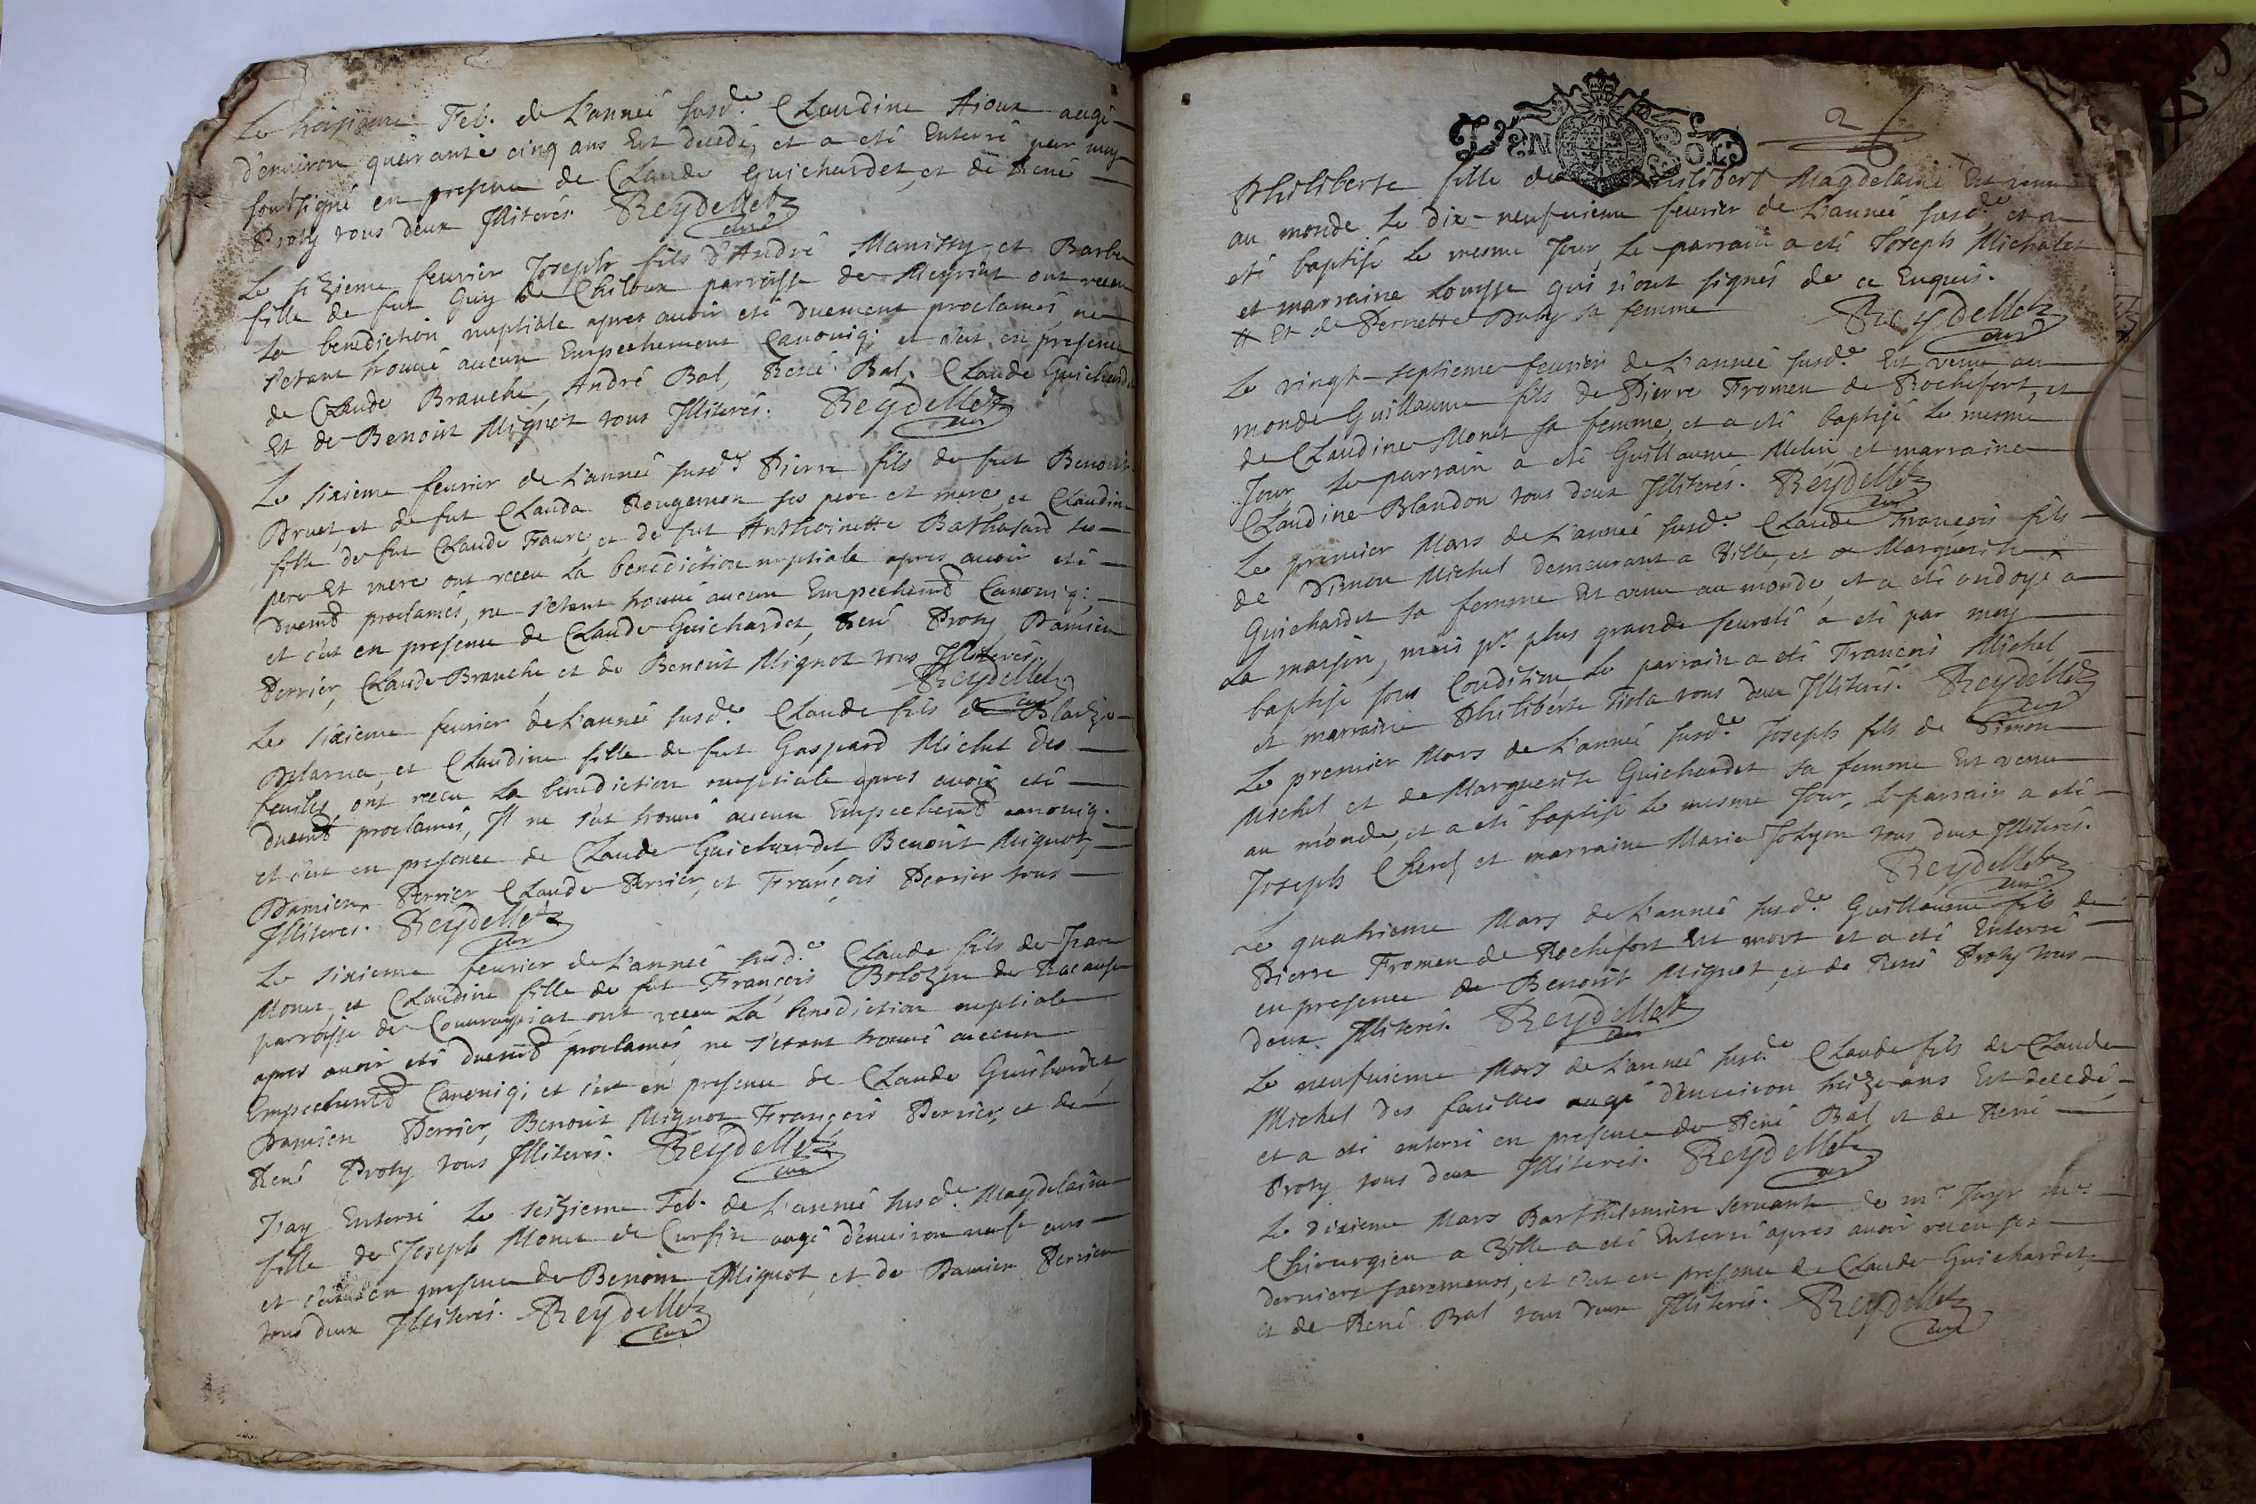 Le troisieme Feb. de L'anneé susd.e Claudine Aioux aagé
d'environ quarante cinq ans Est decedé, et a eté Enterré par moy
soubsigné en presence de Claude Guichardet, et de René
Proty tous deux Illiterés. Reydellet
curé
Le sizieme feurier Joseph fils d'André Manissy et Barbe
fille de fut Guy de Chiloux parroisse de Meyriat ont receu
La benediction nuptiale apres auoir eté duement proclamés ne
s'etant trouué aucun Empechement Canoniq; et c'est en presence
de Claude Branche, André Bal, René Bal, Claude Guichardet
Et de Benoist Mignot tous Illiterés. Reydellet
curé
Le sixieme feurier de L'anneé susd.e Pierre fils de fut Benoist
Druet, et de fut Clauda Rougemon ses pere et mere et Claudine
fille de fut Claude Faure et de fut Anthoinette Bathasard ses
pere Et mere ont receu La benediction nuptiale apres auoir eté
duemt proclamés, ne s'etant trouué aucun Empechemt Canoniq;
et c'est en presence de Claude Guichardet, René Proty, Damien
Perrier, Claude Branche et de Benoist Mignot tous Illiterés
Reydellet
curé
Le sixieme feurier de L'anneé susd.e Claude fils de Blaize
Delarua, et Claudine fille de fut Gaspard Michel des
feuilles ont receu La benediction nuptiale apres auoir eté
duemt proclamés, Il ne s'est trouué aucun Empechemt canoniq.
et c'est en presence de Claude Guichardet, Benoist Mignot,
Damien Perrier Claude Perrier, et François Perrier tous
Illiteres. Reydellet
curé
Le sixieme feurier de L'anneé susd.e Claude fils de Jean
Monet et Claudine fille de fut François Bolozon de Racouse
parroisse de ont receu La benediction nuptiale
apres auoir eté duemt proclamés, ne s'etant trouué aucun
Empechemt Canoniq; et c'est en presence de Claude Guichardet
Damien Perrier, Benoist Mignot François Perrier, et de
René Proty tous Illiterés. Reydellet
curé
J'ay Enterré Le seizieme Feb. de L'anneé susd.e Magdelaine
fille de Joseph Monet de aagé d'enuiron neuf ans
et c'est en presence de Benoist Mignot, et de Damien Perrier
tous deux Illiterés. Reydellet
curé
DEN SOLS
2
Philiberte fille de Philibert Magdelaine Est venue
au monde Le dix-neufuieme feurier de L'anneé susd.e et a
eté baptisé le mesme Jour, Le parrain a eté Joseph Michalet
et marraine Louyse qui n'ont signés de ce Enquis.
# Et de Pernette Dahy sa femme Reydellet
curé
Le vingt-septieme feurier de L'anneé susd.e Est venu au
monde Guillaume fils de Pierre Fromen de Rochefort, et
de Claudine Monet sa femme, et a eté baptisé le mesme
Jour Le parrain a eté Guillaume Melin et marraine
Claudine Blandon tous deux Illiterés. Reydellet
curé
Le premier Mars de L'anneé susd.e Claude François fils
de Simon Michel demeurant a Sille, et de Marguerite
Guichardet sa femme Est venu au monde, et a eté ondoyé a
La maison, mais pr. plus grande seureté a eté par moy
baptisé sous Condition Le parrain a eté François Michel
et marraine Philiberte Fiola tous deux Illiterés. Reydellet
curé
Le premier Mars de L'anneé susd.e Joseph fils de Simon
Michel et de Marguerite Guichardet sa femme Est venu
au monde, et a eté baptisé le mesme Jour, Le parrain a eté
Joseph Cherel et marraine Marie Jolyon tous deux Illiterés.
Reydellet
curé
Le quatrieme Mars de L'anneé susd.e Guillaume fils de
Pierre Fromen de Rochefort Est mort et a eté Enterré
en presence de Benoist Mignot, et de René Proty tous
deux Illiterés. Reydellet
curé
Le neufuieme Mars de L'anneé susd.e Claude fils de Claude
Michel des feuilles aagé d'enuiron treize ans Est decedé,
et a eté enterré en presence de René Bal et de René
Proty tous deux Illiterés. Reydellet
curé
Le dixieme Mars Barthelemiere seruante de mr. Jayr me.
Chirurgien a Sille a eté Enterré apres auoir receu ses
derniers sacremens, et c'est en presence de Claude Guichardet,
et de René Bal tous deux Illiterés. Reydellet
curé